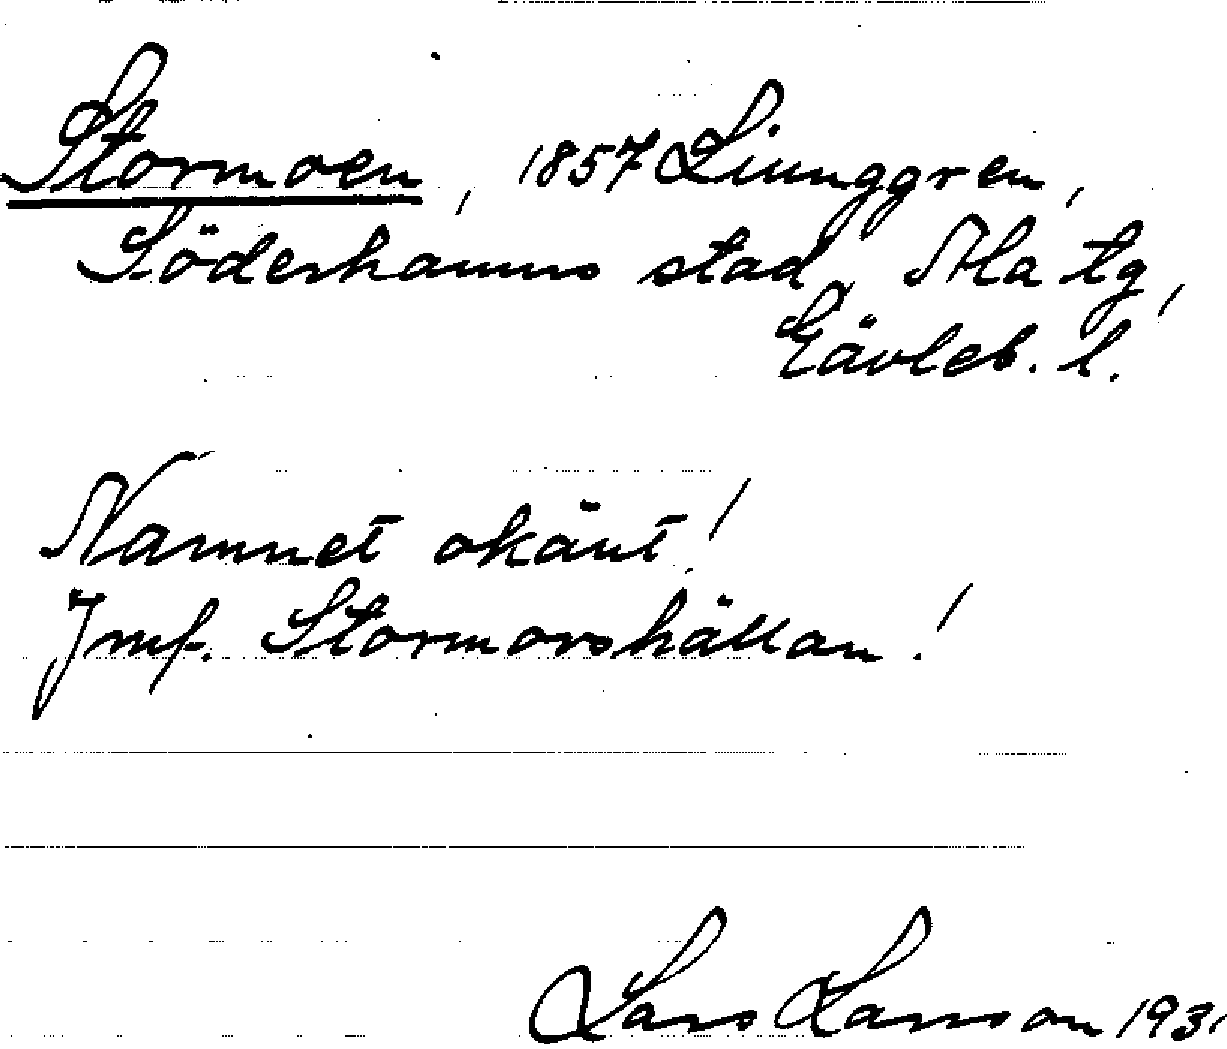 Stormoen, 1857 Ljunggren,
Söderhamns stad, Ala tg,
Gävleb. l.
Namnet okänt!
Jmf. Stormorshällan!
Lars Larsson 1931